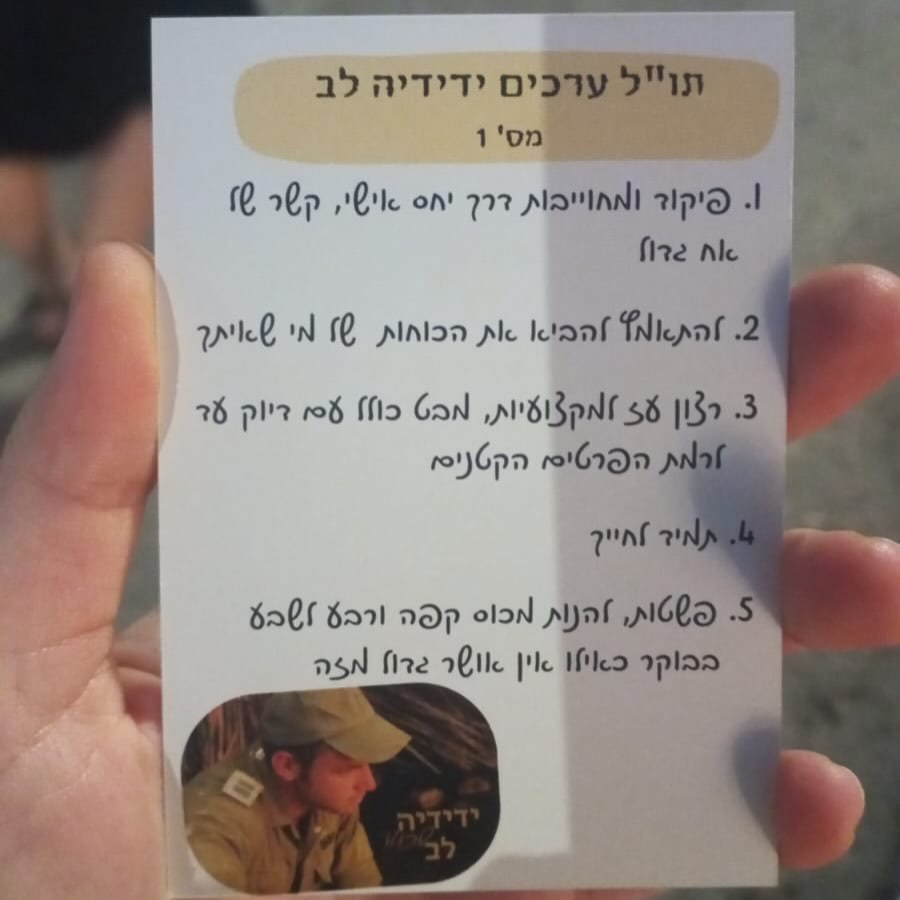 תו"ל ערכים ידידיה לב
מס' 1
1. פיקוד ומחוייבות דרך יחס אישי, קשר של
אח גדול
2. להתאמץ להביא את הכוחות של מי שאיתך
3. רצון עז למקצועיות, מבט כולל עם דיוק עד
לרמת הפרטים הקטנים
4. תמיד לחייך
5. פשטות, להנות מכוס קפה ורבע לשבע
בבוקר כאילו אין אושר גדול מזה
ידידיה
לב